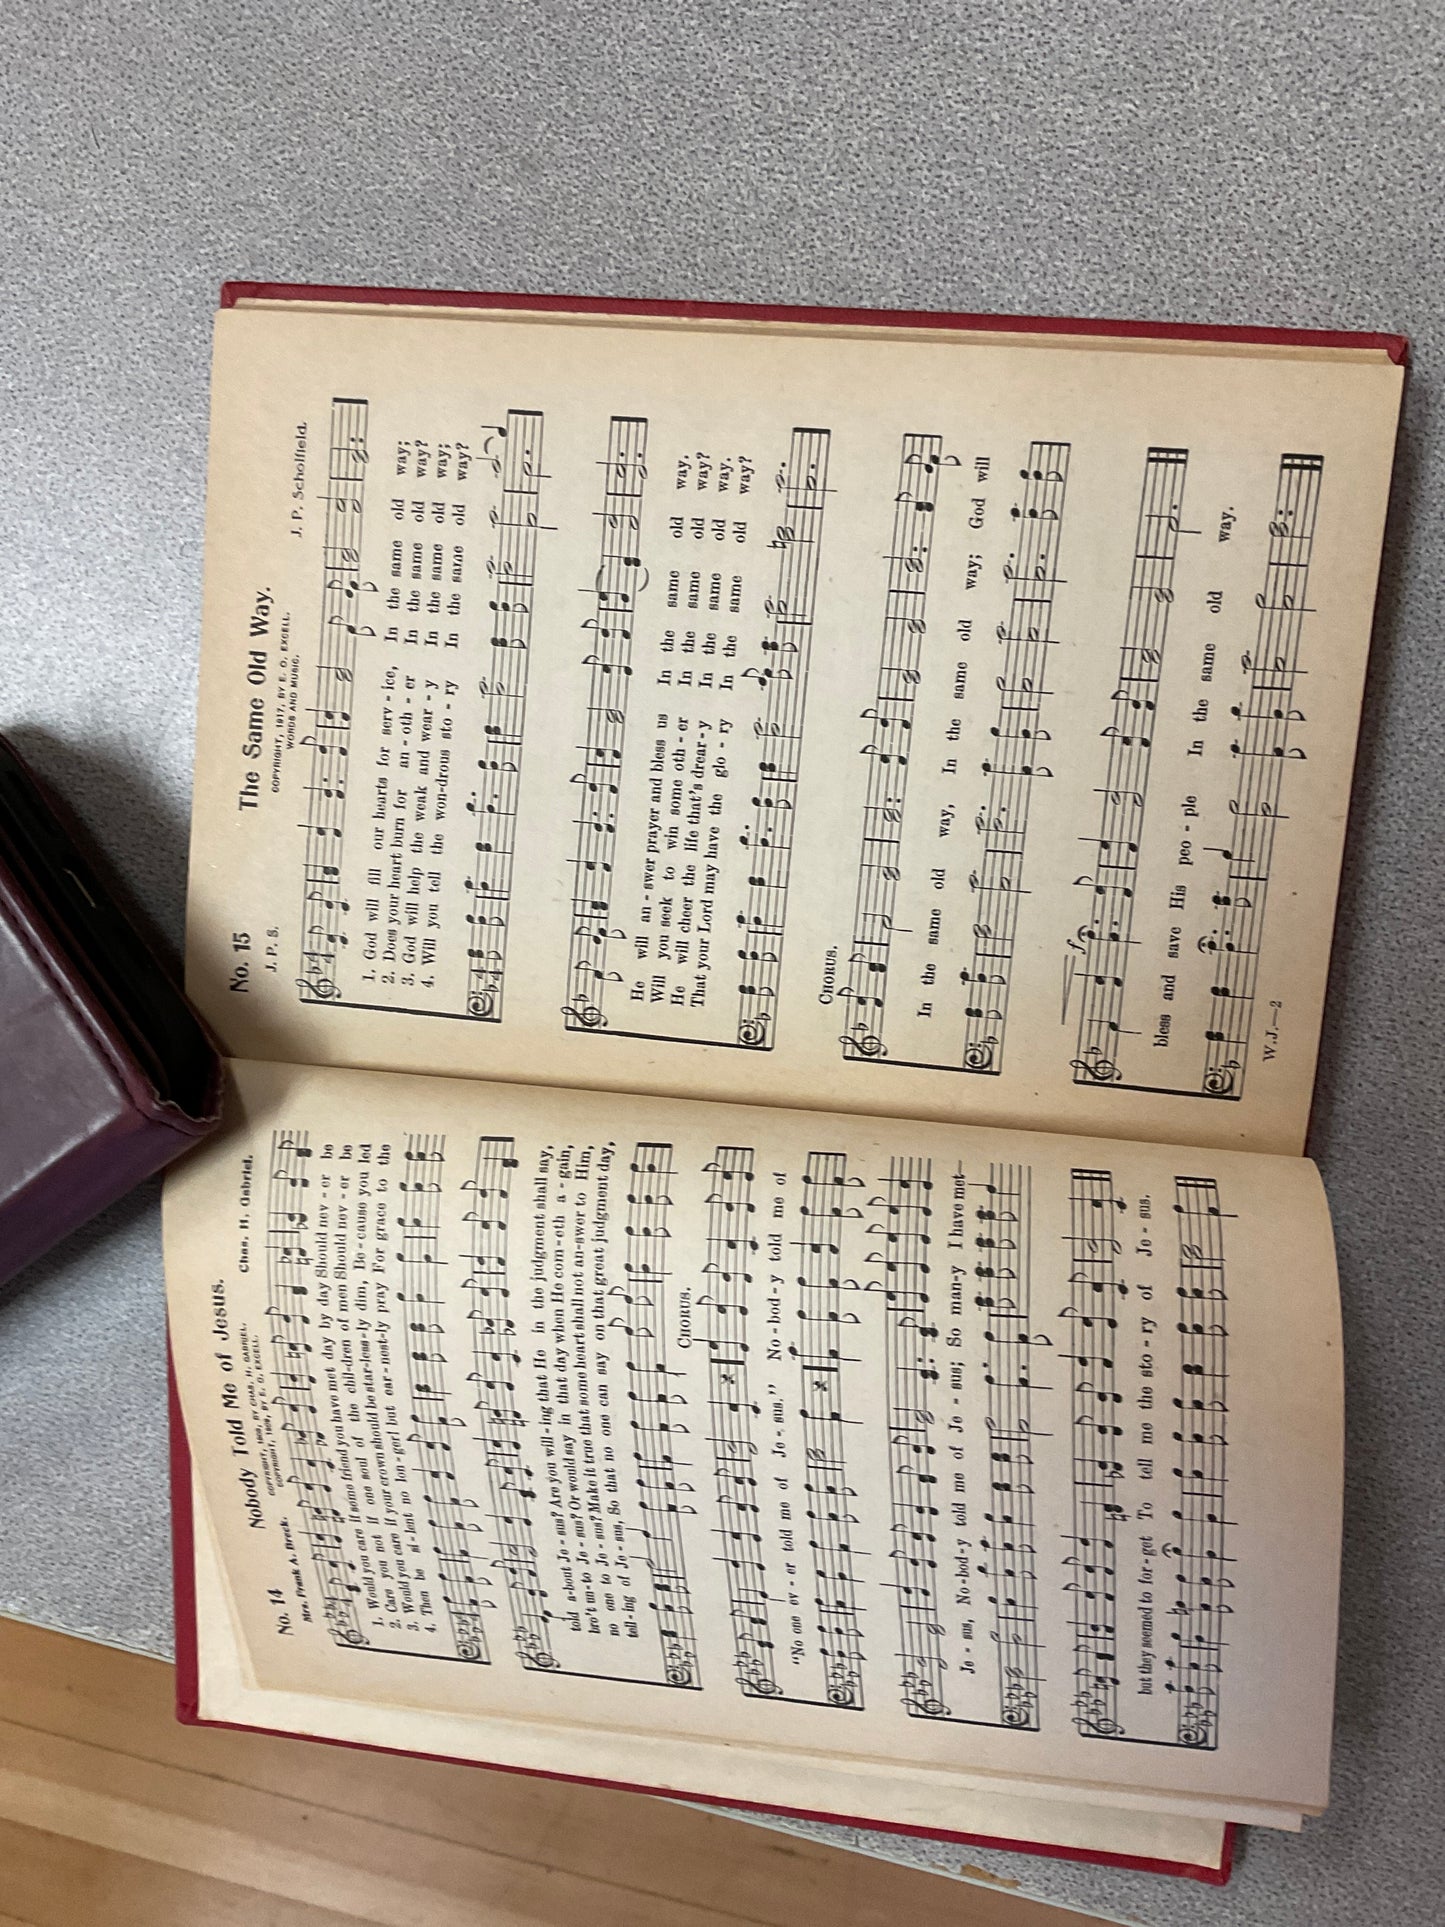 No. 14
Nobody Told Me of Jesus.
COPYRIGHT, 1909, BY CHAS. H. GABRIEL.
COPYRIGHT, 1909, BY E. O. EXCELL.
Mrs. Frank A. Breck.
Chas. H. Gabriel.
1. Would you care if some friend you have met day by day Should nev - er be
2. Care you not if one soul of the chil-dren of men Should nev - er be
3. Would you care if your crown should be star-less-ly dim, Be - cause you led
4. Then be si - lent no lon-ger! but ear - nest-ly pray For grace to the
told a-bout Je - sus? Are you will - ing that He in the judgment shall say,
bro't un-to Je - sus? Or would say in that day when He com-eth a - gain,
no one to Je - sus? Make it true that some heart shall not an-swer to Him,
tell - ing of Je - sus, So that no one can say on that great judgment day,
CHORUS.
"No one ev - er told me of Je - sus." No - bod - y told me of
Je - sus, No-bod-y told me of Je - sus; So man-y I have met—
but they seemed to for-get To tell me the sto - ry of Je - sus.
No. 15
The Same Old Way.
COPYRIGHT, 1917, BY E. O. EXCELL.
WORDS AND MUSIC.
J. P. S.
J. P. Scholfield.
1. God will fill our hearts for serv - ice, In the same old way;
2. Does your heart burn for an - oth - er In the same old way?
3. God will help the weak and wear - y In the same old way;
4. Will you tell the won-drous sto - ry In the same old way?
He will an - swer prayer and bless us In the same old way.
Will you seek to win some oth - er In the same old way?
He will cheer the life that's drear - y In the same old way.
That your Lord may have the glo - ry In the same old way?
CHORUS.
In the same old way, In the same old way; God will
f
bless and save His peo - ple In the same old way.
W.J.—2